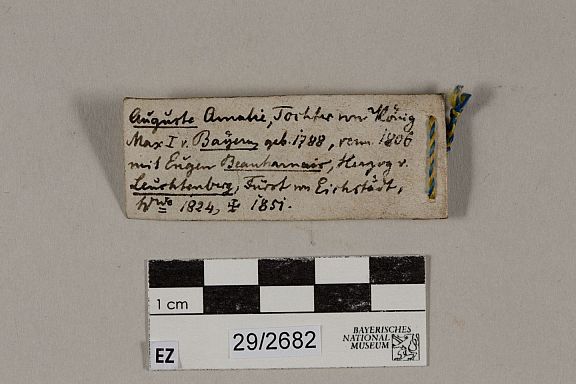 Auguste Amalie, Tochter von König
Max I v. Bayern, geb. 1788, verm. 1806
mit Eugen Beauharnais, Herzog v.
Leuchtenberg, Fürst von Eichstädt,
Wwe 1824, ‡ 1851.
1 cm
BAYERISCHES
NATIONAL
MUSEUM
EZ
29/2682